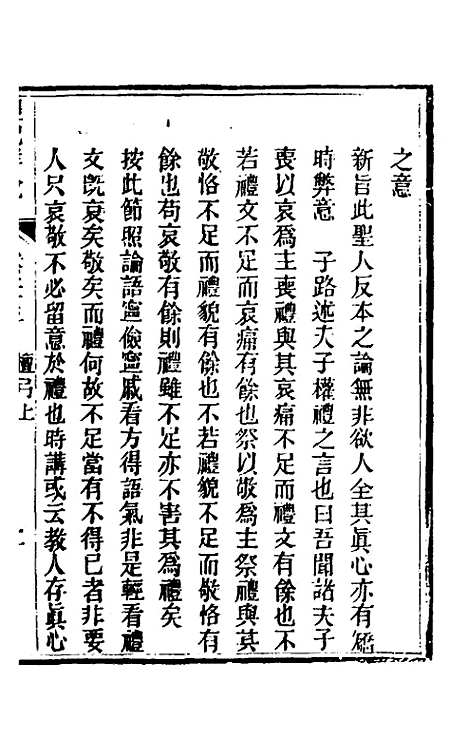 之意
新旨此聖人反本之論無非欲人全其眞心亦有矯
時弊意　子路述夫子權禮之言也曰吾聞諸夫子
喪以哀爲主喪禮與其哀痛不足而禮文有餘也不
若禮文不足而哀痛有餘也祭以敬爲主祭禮與其
敬恪不足而禮貌有餘也不若禮貌不足而敬恪有
餘也苟哀敬有餘則禮雖不足亦不害其爲禮矣
按此節照論語寧儉寧戚看方得語氣非是輕看禮
文旣哀矣敬矣而禮何故不足當有不得已者非要
人只哀敬不必留意於禮也時講或云教人存眞心
檀弓上